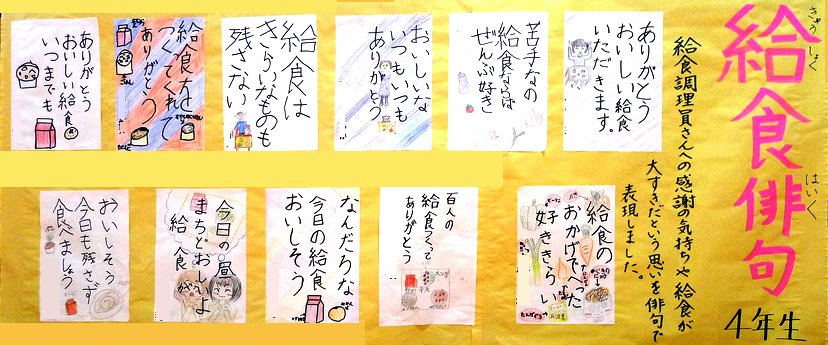 給食俳句
きゅう しょく
はいく
4年生
給食調理員さんへの感謝の気持ちや給食が
大すきだという思いを俳句で
表現しました。
ありがとう
おいしい給食
いただきます。
苦手なの
給食ならば
ぜんぶ好き
おいしいな
いつもいつも
ありがとう
給食は
きらいなものも
残さない
給食を
つくってくれて
ありがとう
ありがとう
おいしい給食
いつまでも
給食の
おかげでへった
好ききらい
百人の
給食つくって
ありがとう
なんだろな
今日の給食
おいしそう
今日の昼
まちどおしいよ
給食
おいしそう
今日も残さず
食べましょう